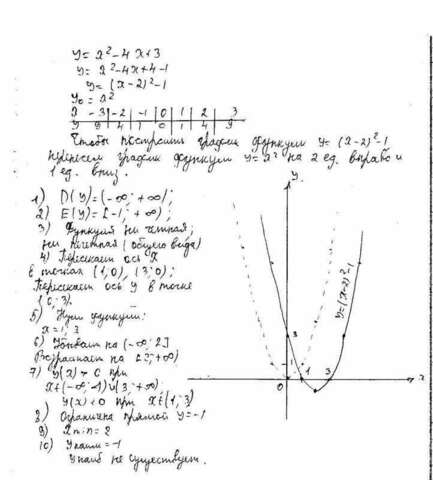 y = x² - 4x + 3
y = x² - 4x + 4 - 1
y = (x - 2)² - 1
y₀ = x²
x -3 -2 -1 0 1 2 3
y 9 4 1 0 1 4 9
Чтобы построить график функции y = (x-2)² - 1
перенесем график функции y = x² на 2 ед. вправо и
1 ед. вниз.
1) D(y) = (-∞; +∞);
2) E(y) = [-1; +∞);
3) Функция ни четная,
ни нечетная (общего вида)
4) Пересекает ось X
в точках (1; 0), (3; 0);
Пересекает ось y в точке
(0; 3).
5) Нули функции:
x = 1; 3
6) Убывает на (-∞; 2]
Возрастает на [2; +∞)
7) y(x) > 0 при
x ∈ (-∞; 1) ∪ (3; +∞)
y(x) < 0 при x ∈ (1; 3)
8) Ограничена прямой y = -1
9) = 2
10) y наим = -1
y наиб не существует.
y
y = (x-2)² - 1
3
1
0
1
3
x